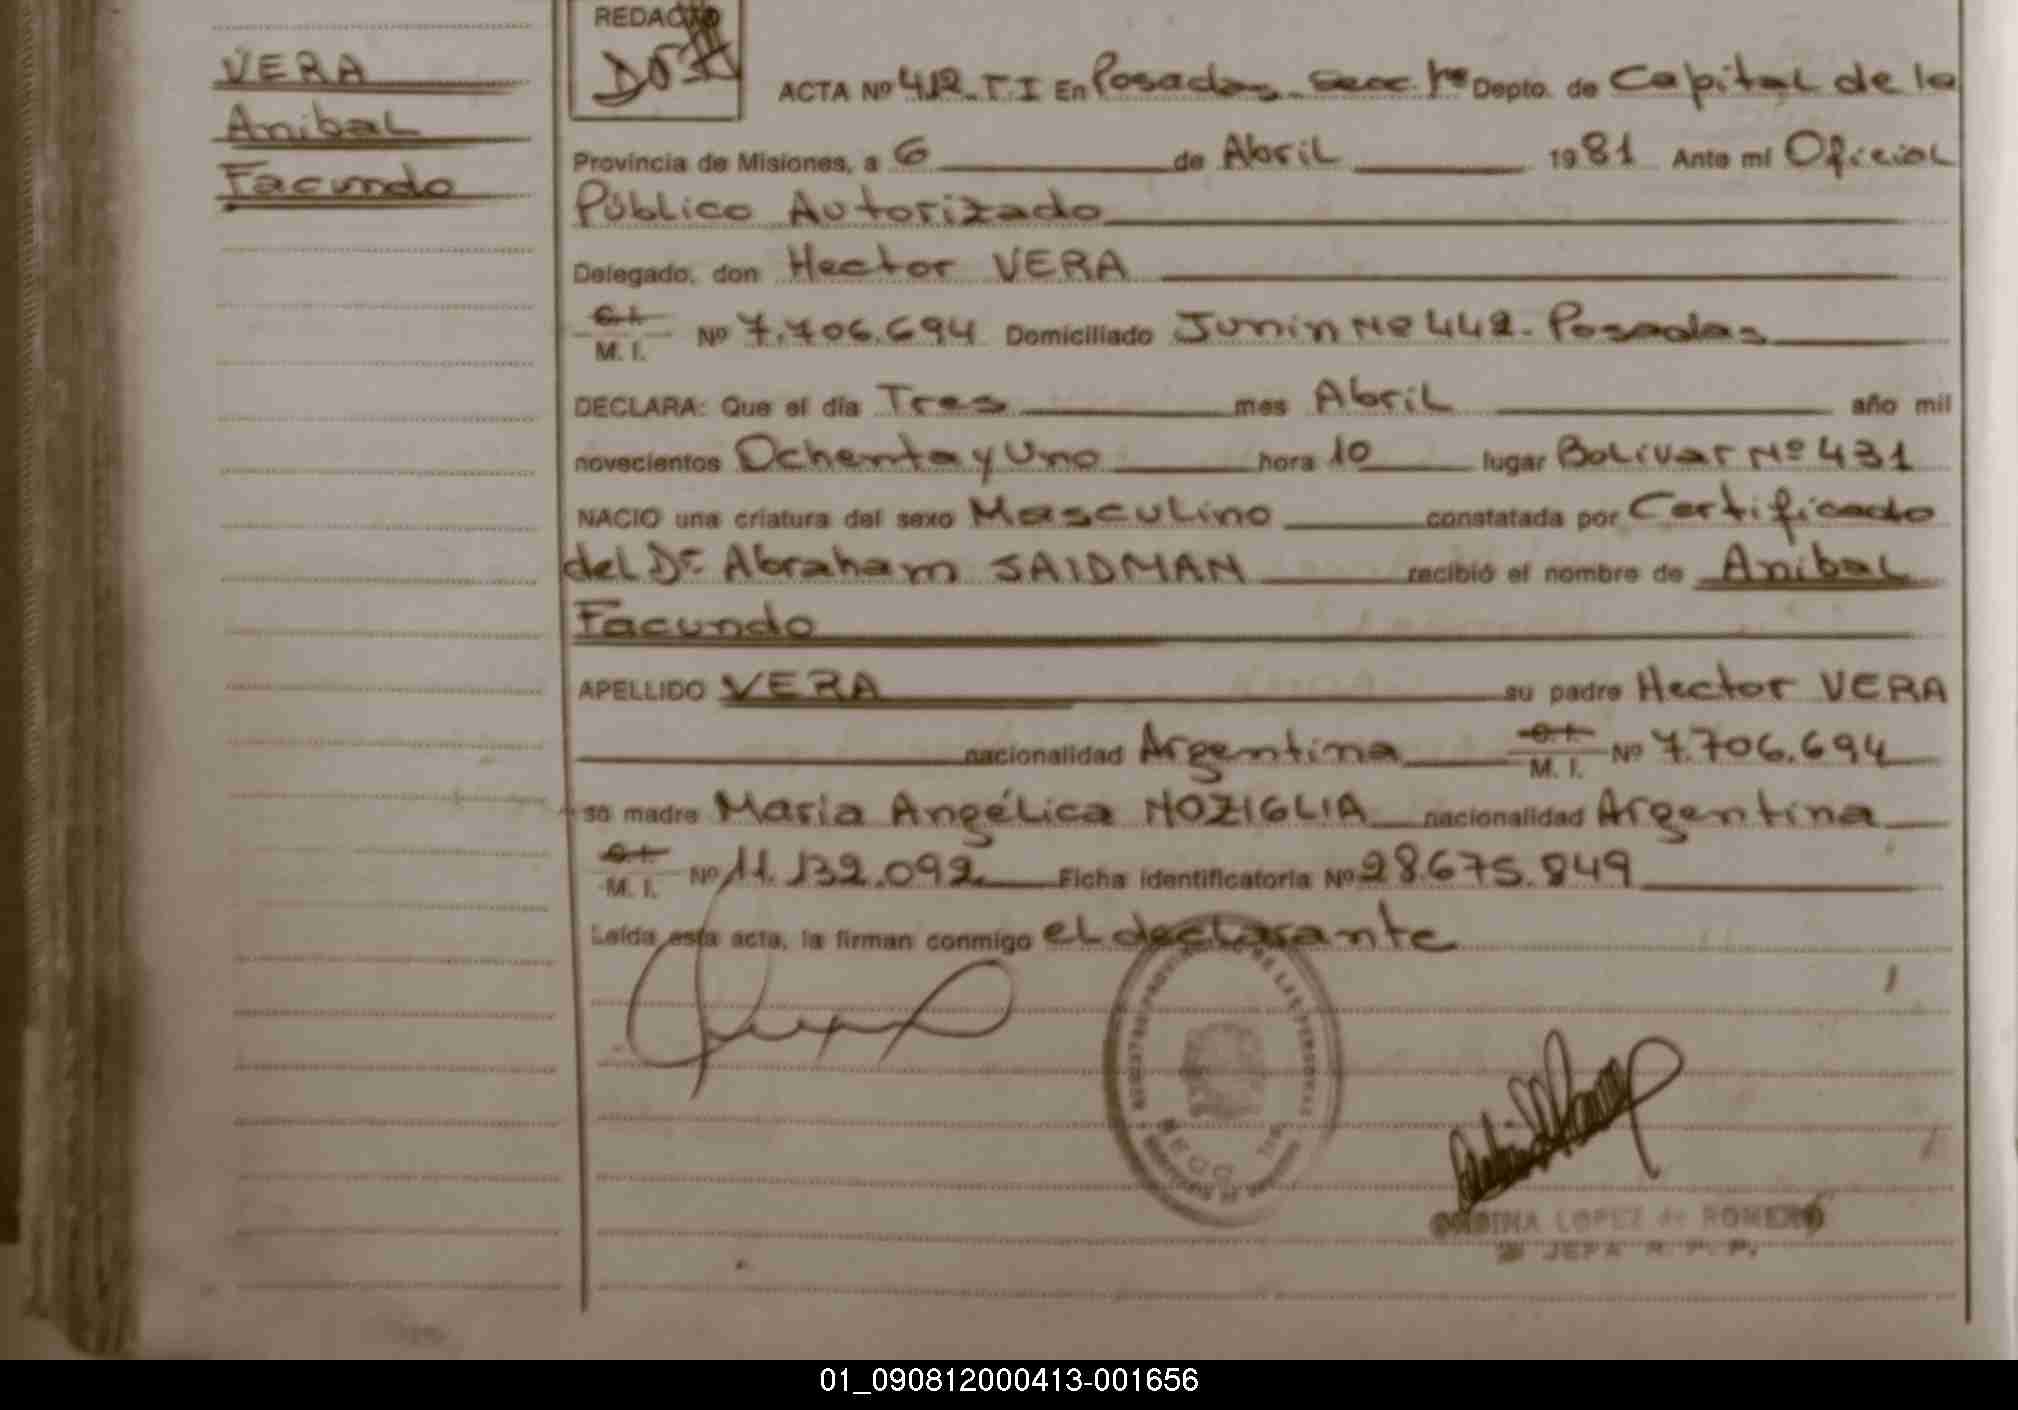 VERA
Anibal
Facundo
REDACTO
ACTA Nº 412-T.I En Posadas Secc. 1ra Depto. de Capital de la
Provincia de Misiones, a 6 de Abril 1981 Ante mí Oficial
Público Autorizado
Delegado, don Hector VERA
C.I.
M. I. Nº 7.706.694 Domiciliado Junin Nº 442 - Posadas
DECLARA: Que el día Tres mes Abril año mil
novecientos Ochenta y Uno hora 10 lugar Bolivar Nº 431
NACIO una criatura del sexo Masculino constatada por Certificado
del Dr. Abraham SAIDMAN recibió el nombre de Anibal
Facundo
APELLIDO VERA su padre Hector VERA
nacionalidad Argentina C.I.
M. I. Nº 7.706.694
su madre Maria Angélica NOZIGLIA nacionalidad Argentina
C.I.
M. I. Nº 11.132.092 Ficha identificatoria Nº 28.675.849
Leída esta acta, la firman conmigo el declarante
LOPEZ de ROMERO
JEFA R. P. P.
01_090812000413-001656